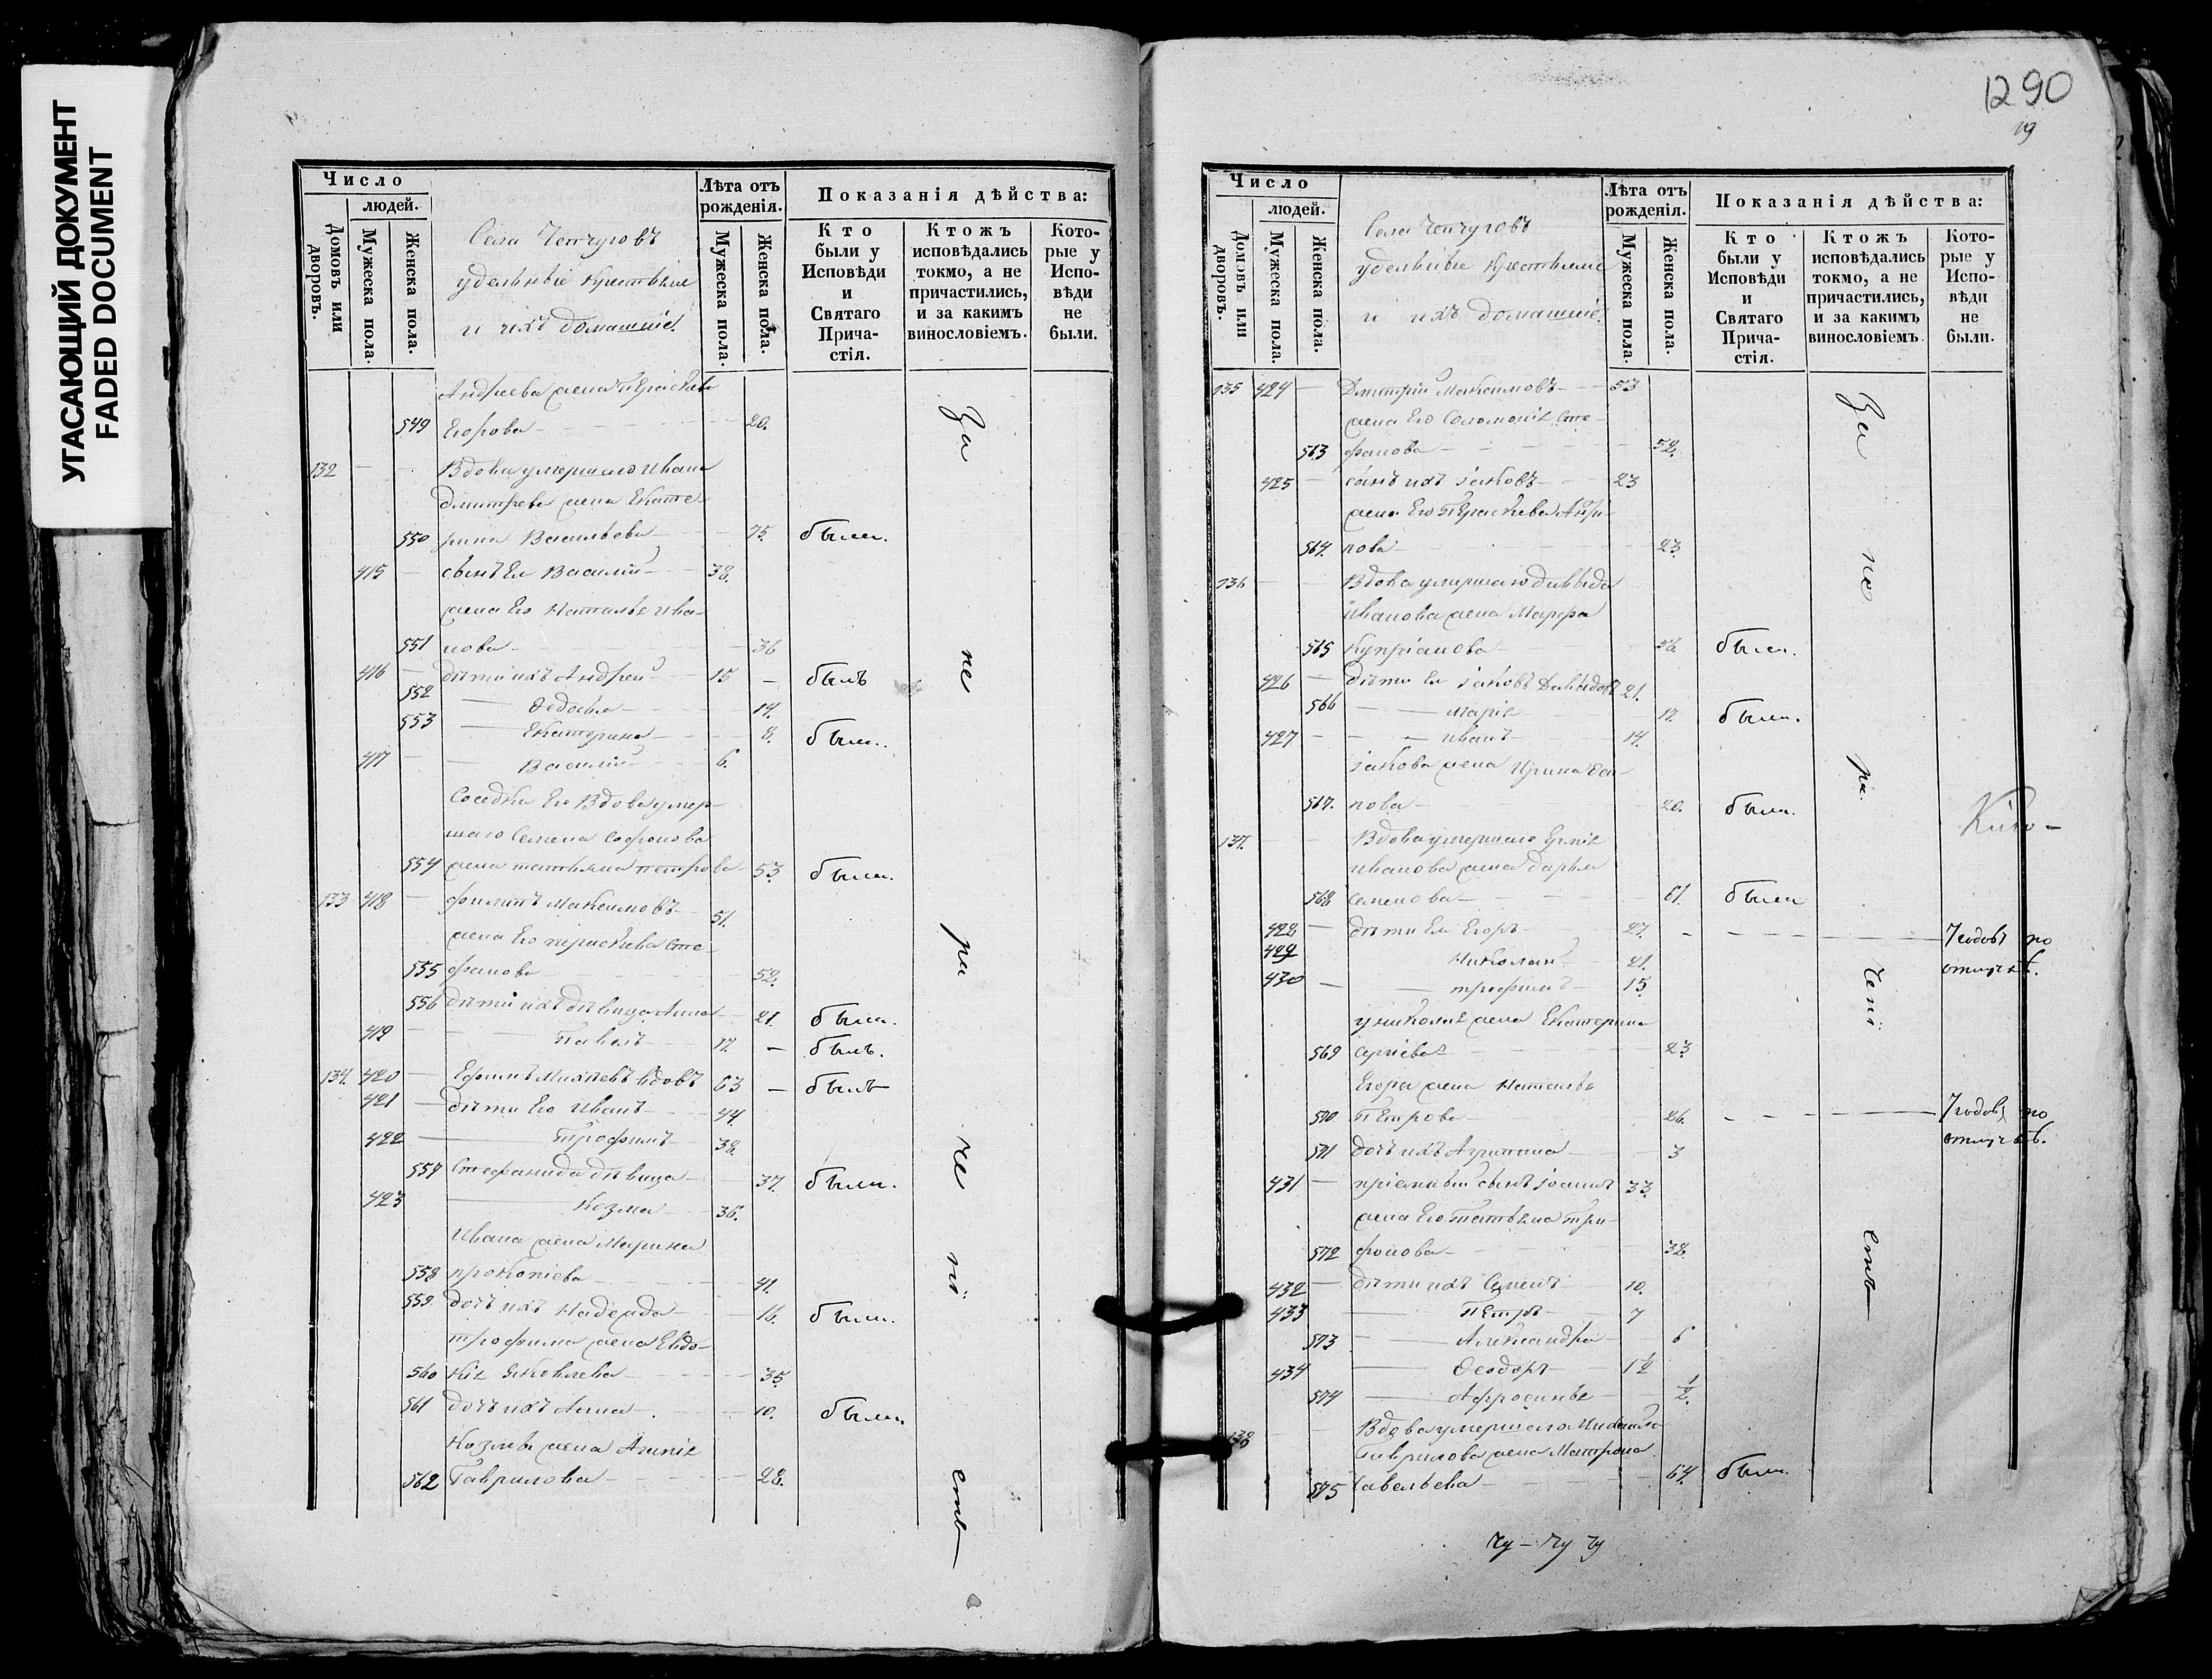 УГАСАЮЩИЙ ДОКУМЕНТ
FADED DOCUMENT
Число
людей.
Домовъ или дворовъ.
Мужеска пола.
Женска пола.
Села Чепчуговъ
удельныіе Крестьяне
и ихъ домашніе.
Лѣта отъ рожденія.
Мужеска пола.
Женска пола.
Показанія дѣйства:
Кто были у Исповѣди и Святаго Прича-стія.
Ктожъ исповѣдались токмо, а не причастились, и за какимъ винословіемъ.
Кото-рые у Испо-вѣди не были.
Андреева жена Параскева
549 Егорова 20.
132 Вдова умершаго Ивана
Дмитрева жена Екате-
550 рина Васильева 75. была.
415 сынъ Ея Василий 38.
жена Его Наталья Ива-
551 нова 36
416 дѣти ихъ Андрей 15 былъ
552 Федосья 14.
553 Екатерина 8. были.
417 Василий 6.
Соседка Его Вдова умер-
шаго Семена Софронова
554 жена татьяна петрова 53. была.
133 418 филипъ Максимовъ 51.
жена Его параскева Сте-
555 фанова 52.
556 дѣти ихъ дѣвица Анна 21. была.
419 Павелъ 17. былъ.
134. 420 Ефимъ Вдовъ 63 былъ
421 дѣти Его Иванъ 44.
422 Трофимъ 38.
557 Стефанида дѣвица 37. была.
423 Козма 36.
Ивана жена Марина
558 прокопіева 41.
559 дочь ихъ Надежда 16. была.
трофима жена Евдо-
560 кія Яковлева 35.
561 дочь ихъ Анна 10. была.
Козмы жена
562 Гаврилова 28.
За не ра че ні емъ
1290
Число
людей.
Домовъ или дворовъ.
Мужеска пола.
Женска пола.
Села Чепчуговъ
удельныіе Крестьяне
и ихъ домашніе.
Лѣта отъ рожденія.
Мужеска пола.
Женска пола.
Показанія дѣйства:
Кто были у Исповѣди и Святаго Прича-стія.
Ктожъ исповѣдались токмо, а не причастились, и за какимъ винословіемъ.
Кото-рые у Испо-вѣди не были.
135 424 Дмитрій Максимовъ 53
жена Его Соломонія Сте-
563 фанова 52.
425 сынъ ихъ Іаковъ 23
жена Его Параскева
564. пова 23.
136 Вдова умершаго Давыда
Иванова жена Марфа
565 Купріанова 56. была.
426 дѣти Ея Іаковъ Давыдовъ 21.
566 Марія 17. была.
427 Иванъ 14.
Іакова жена Ирина
567. пова 20. была.
137. Вдова умершаго
Иванова жена Дарья
568 Семенова 61. была
428 дѣти Ея Егоръ 27. 7 годовъ по
отлучкѣ.
429 Николай 21.
430 трофимъ 15.
у николая жена Екатерина
569 Сергіева 23
Егора жена Наталья
570 Петрова 26. 7 годовъ по
отлучкѣ.
571 дочь ихъ 3
431 сынъ Іоаннъ 33.
жена Его Татьяна Три-
572 фонова 38.
432 дѣти ихъ Семенъ 10.
433 Петръ 7
573 Александра 6
434 Феодоръ 1½
574 Афросинья ½.
138 Вдова умершаго Михаила
Гаврилова жена Матрона
575 Савельева 64. была.
За не ра. чені емъ